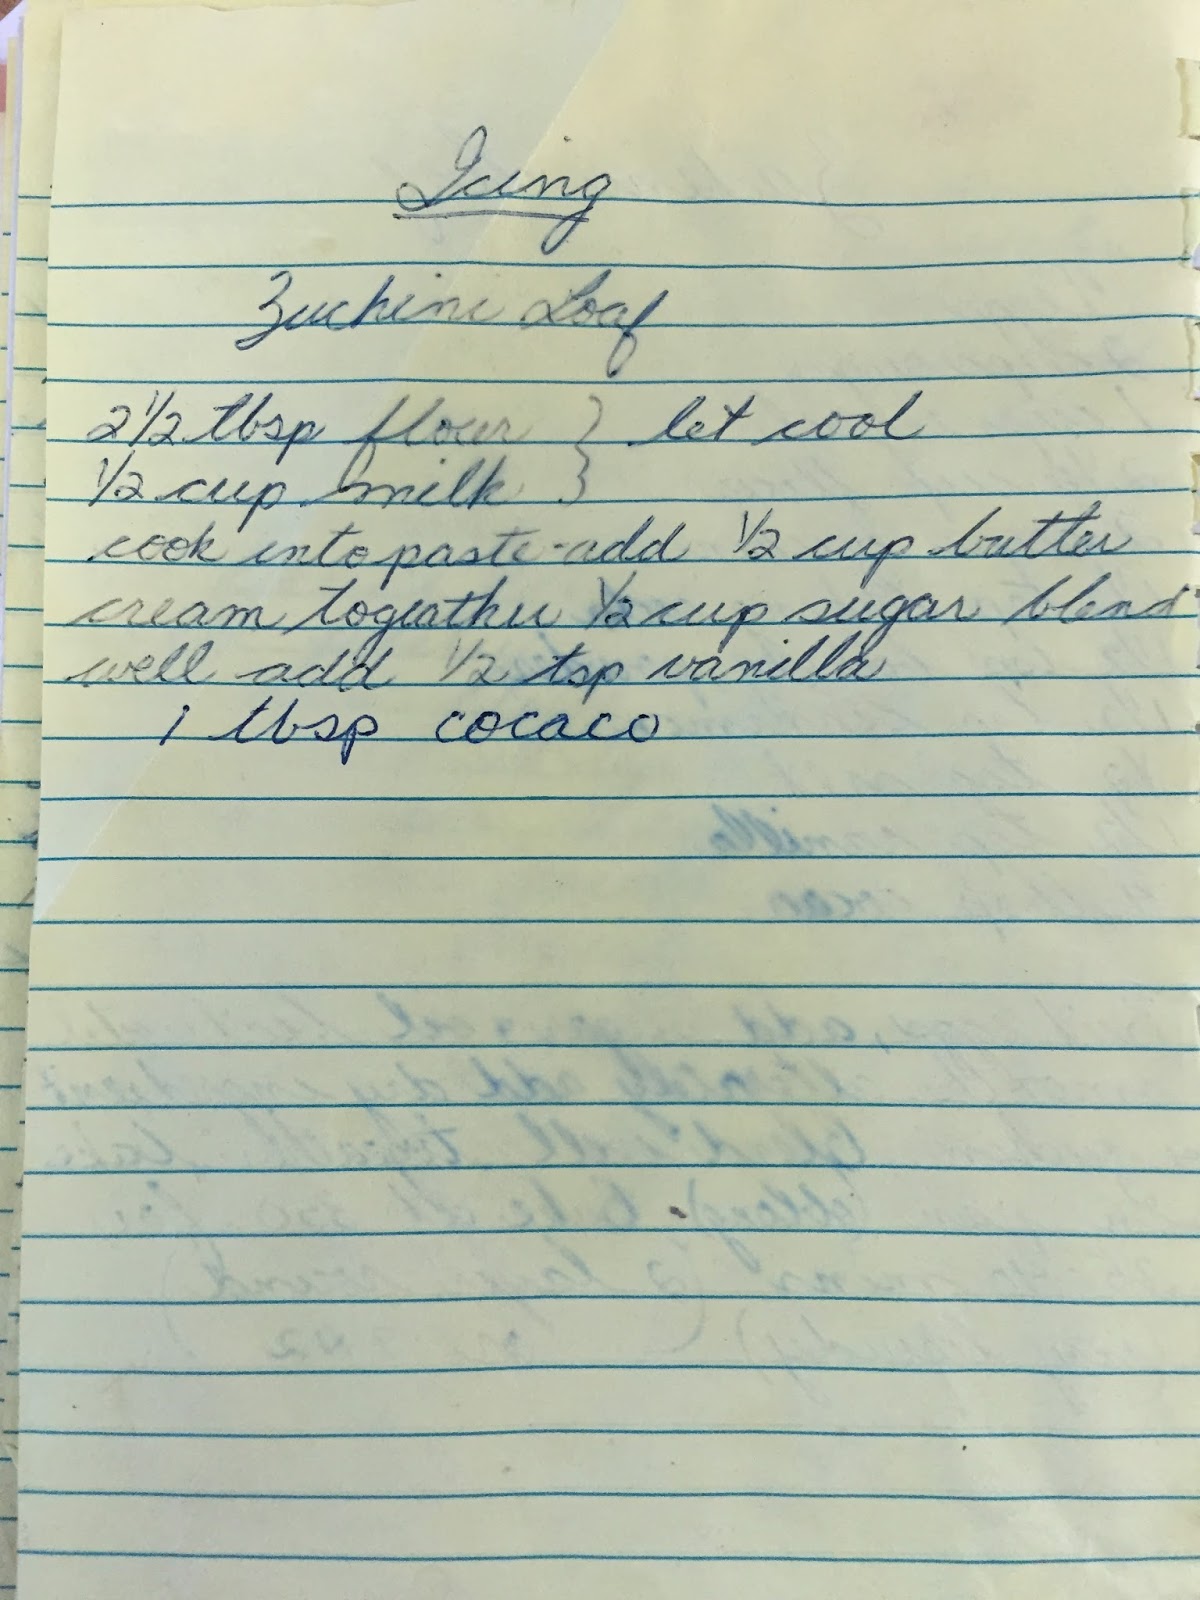 Icing
Zuchini Loaf
2 1/2 tbsp flour } let cool
1/2 cup milk }
cook into paste - add 1/2 cup butter
cream togeather 1/2 cup sugar blend
well add 1/2 tsp vanilla
1 tbsp cocaco